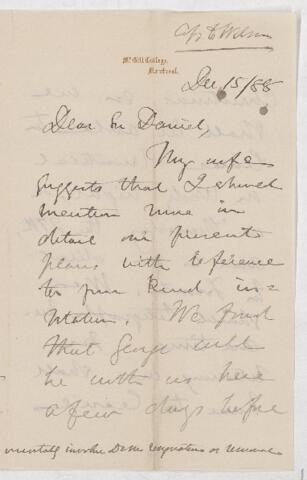 McGill College,
Montreal.
Dec 15/88
Dear Sir Daniel,
My wife
suggests that I should
mention more in
detail our present
plans with reference
to your kind in=
vitation. We find
that George will
be with us here
a few days before